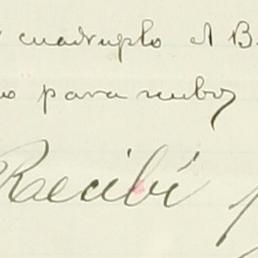 cuadruplo el B
para ambos
Recibí